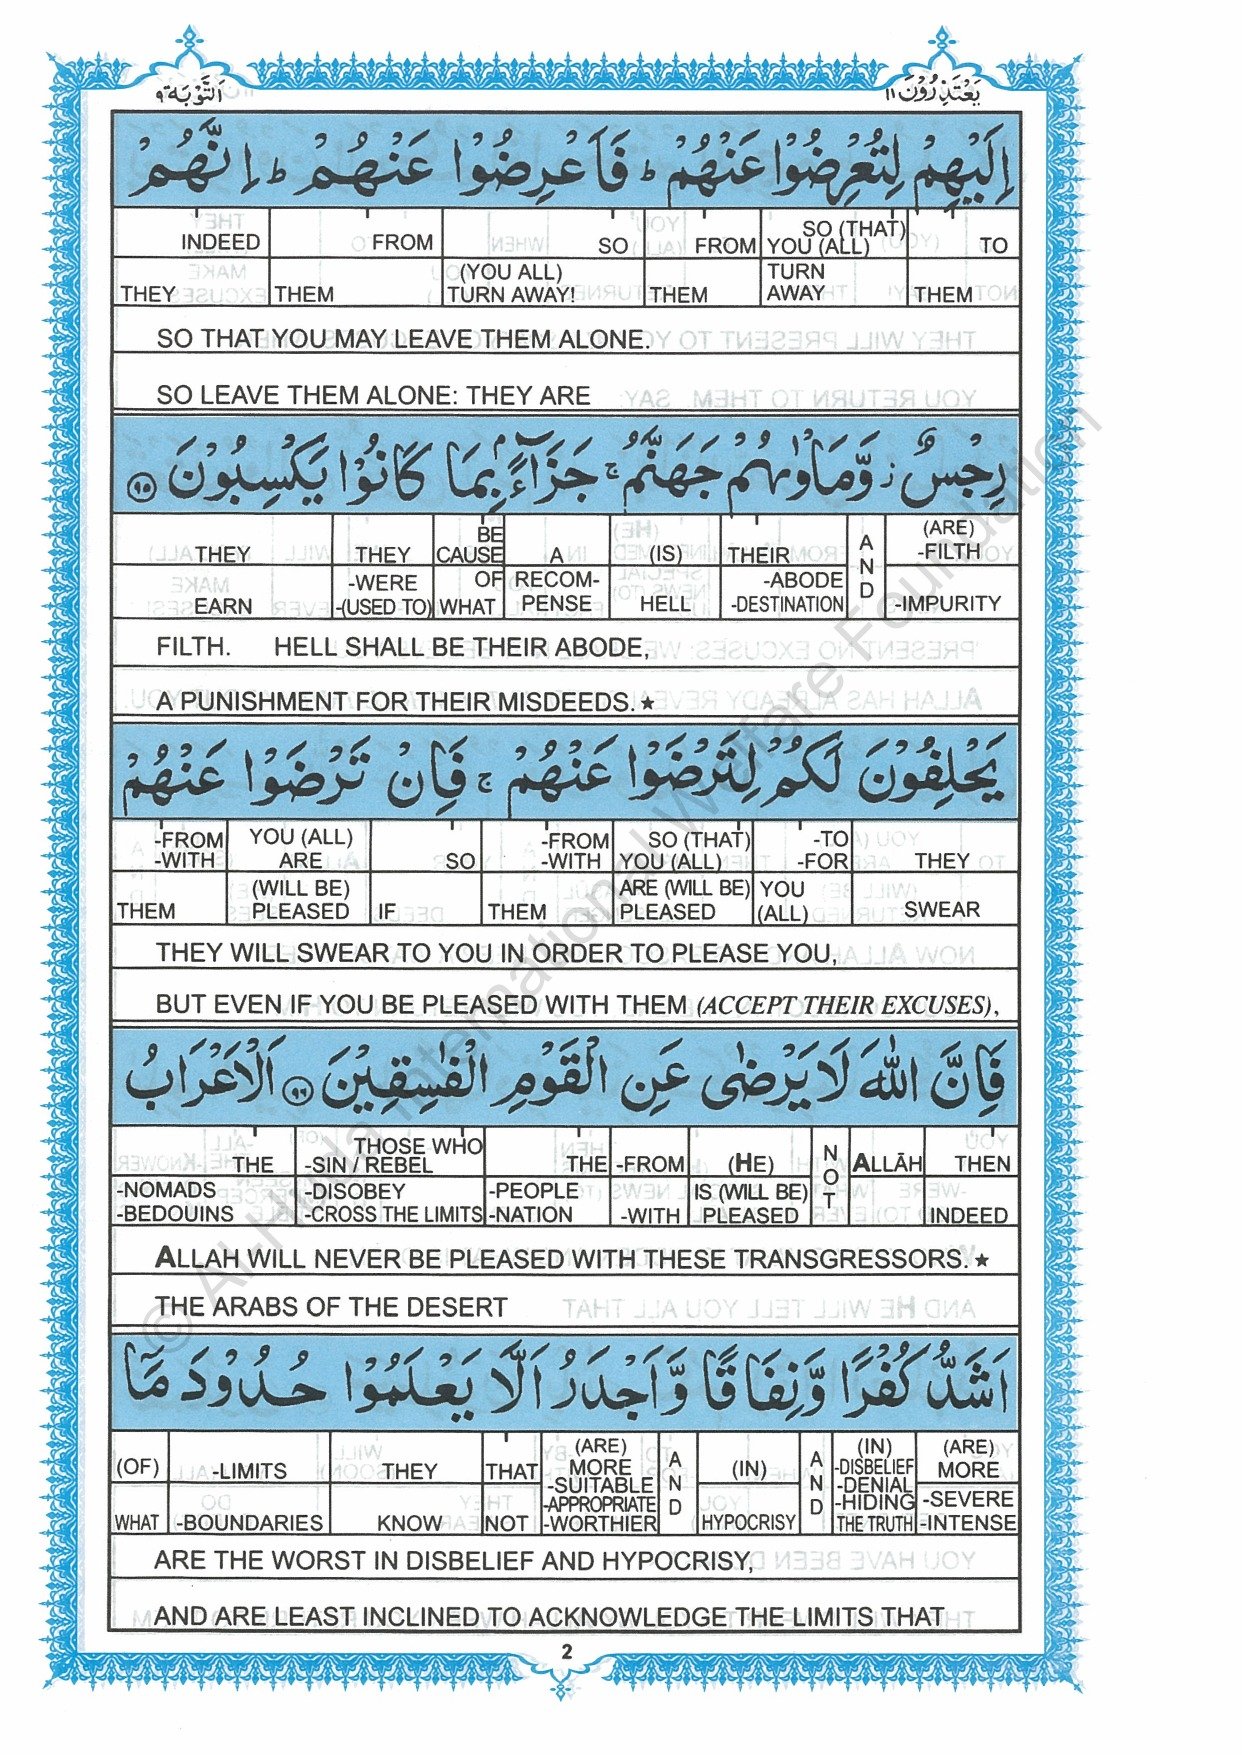 اَلتَّوْبَة ٩ يَعْتَذِرُوْنَ ١١
اِلَيْهِمْ لِتُعْرِضُوْا عَنْهُمْ ؕ فَاَعْرِضُوْا عَنْهُمْ ؕ اِنَّهُمْ
INDEED FROM SO FROM SO (THAT) YOU (ALL) TO
THEY THEM (YOU ALL) TURN AWAY! THEM TURN AWAY THEM
SO THAT YOU MAY LEAVE THEM ALONE.
SO LEAVE THEM ALONE: THEY ARE
رِجْسٌ ؗ وَّمَاْوٰىهُمْ جَهَنَّمُ ۚ جَزَآءًۢ بِمَا كَانُوْا يَكْسِبُوْنَ ٩٥
THEY THEY BE CAUSE A (IS) THEIR AND (ARE) -FILTH
EARN -WERE -(USED TO) OF WHAT RECOM- PENSE HELL -ABODE -DESTINATION -IMPURITY
FILTH. HELL SHALL BE THEIR ABODE,
A PUNISHMENT FOR THEIR MISDEEDS.★
يَحْلِفُوْنَ لَكُمْ لِتَرْضَوْا عَنْهُمْ ۚ فَاِنْ تَرْضَوْا عَنْهُمْ
-FROM -WITH YOU (ALL) ARE SO -FROM -WITH SO (THAT) YOU (ALL) -TO -FOR THEY
THEM (WILL BE) PLEASED IF THEM ARE (WILL BE) PLEASED YOU (ALL) SWEAR
THEY WILL SWEAR TO YOU IN ORDER TO PLEASE YOU,
BUT EVEN IF YOU BE PLEASED WITH THEM (ACCEPT THEIR EXCUSES),
فَاِنَّ اللّٰهَ لَا يَرْضٰى عَنِ الْقَوْمِ الْفٰسِقِيْنَ ٩٦ اَلْاَعْرَابُ
THE THOSE WHO -SIN / REBEL THE -FROM (HE) NOT ALLĀH THEN
-NOMADS -BEDOUINS -DISOBEY -CROSS THE LIMITS -PEOPLE -NATION -WITH IS (WILL BE) PLEASED INDEED
ALLAH WILL NEVER BE PLEASED WITH THESE TRANSGRESSORS.★
THE ARABS OF THE DESERT
اَشَدُّ كُفْرًا وَّنِفَاقًا وَّاَجْدَرُ اَلَّا يَعْلَمُوْا حُدُوْدَ مَآ
(OF) -LIMITS THEY THAT (ARE) MORE -SUITABLE AND (IN) AND (IN) -DISBELIEF -DENIAL (ARE) MORE
WHAT -BOUNDARIES KNOW NOT -APPROPRIATE -WORTHIER HYPOCRISY -HIDING THE TRUTH -SEVERE -INTENSE
ARE THE WORST IN DISBELIEF AND HYPOCRISY,
AND ARE LEAST INCLINED TO ACKNOWLEDGE THE LIMITS THAT
2
© Al-Huda International Welfare Foundation